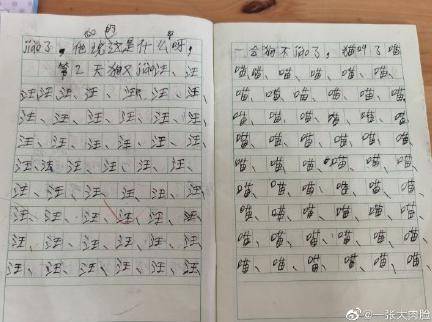 问了。他说这是什么呀,
第2天狗又闻汪、汪
汪汪、汪、汪、汪、汪、汪、
汪、汪、汪、汪、汪、汪、
汪、汪、汪、汪、汪、汪、
汪、汪、汪、汪、汪、汪、汪、
汪、汪、汪、汪、汪、汪、
汪、汪、汪、汪、汪、汪、
汪、汪、汪、汪、汪、汪、
汪、汪、汪、汪、汪、汪、
一会狗不闻了,猫叫了喵
喵喵、喵、喵、喵、喵、
喵、喵、喵、喵、喵、喵、
喵、喵、喵、喵、喵、喵、
喵、喵、喵、喵、喵、喵、
喵、喵、喵、喵、喵、喵、
喵、喵、喵、喵、喵、喵、
喵、喵、喵、喵、喵、喵、
喵、喵、喵、喵、喵、喵、
喵、喵、喵、喵、喵、喵、
@一张大肉脸